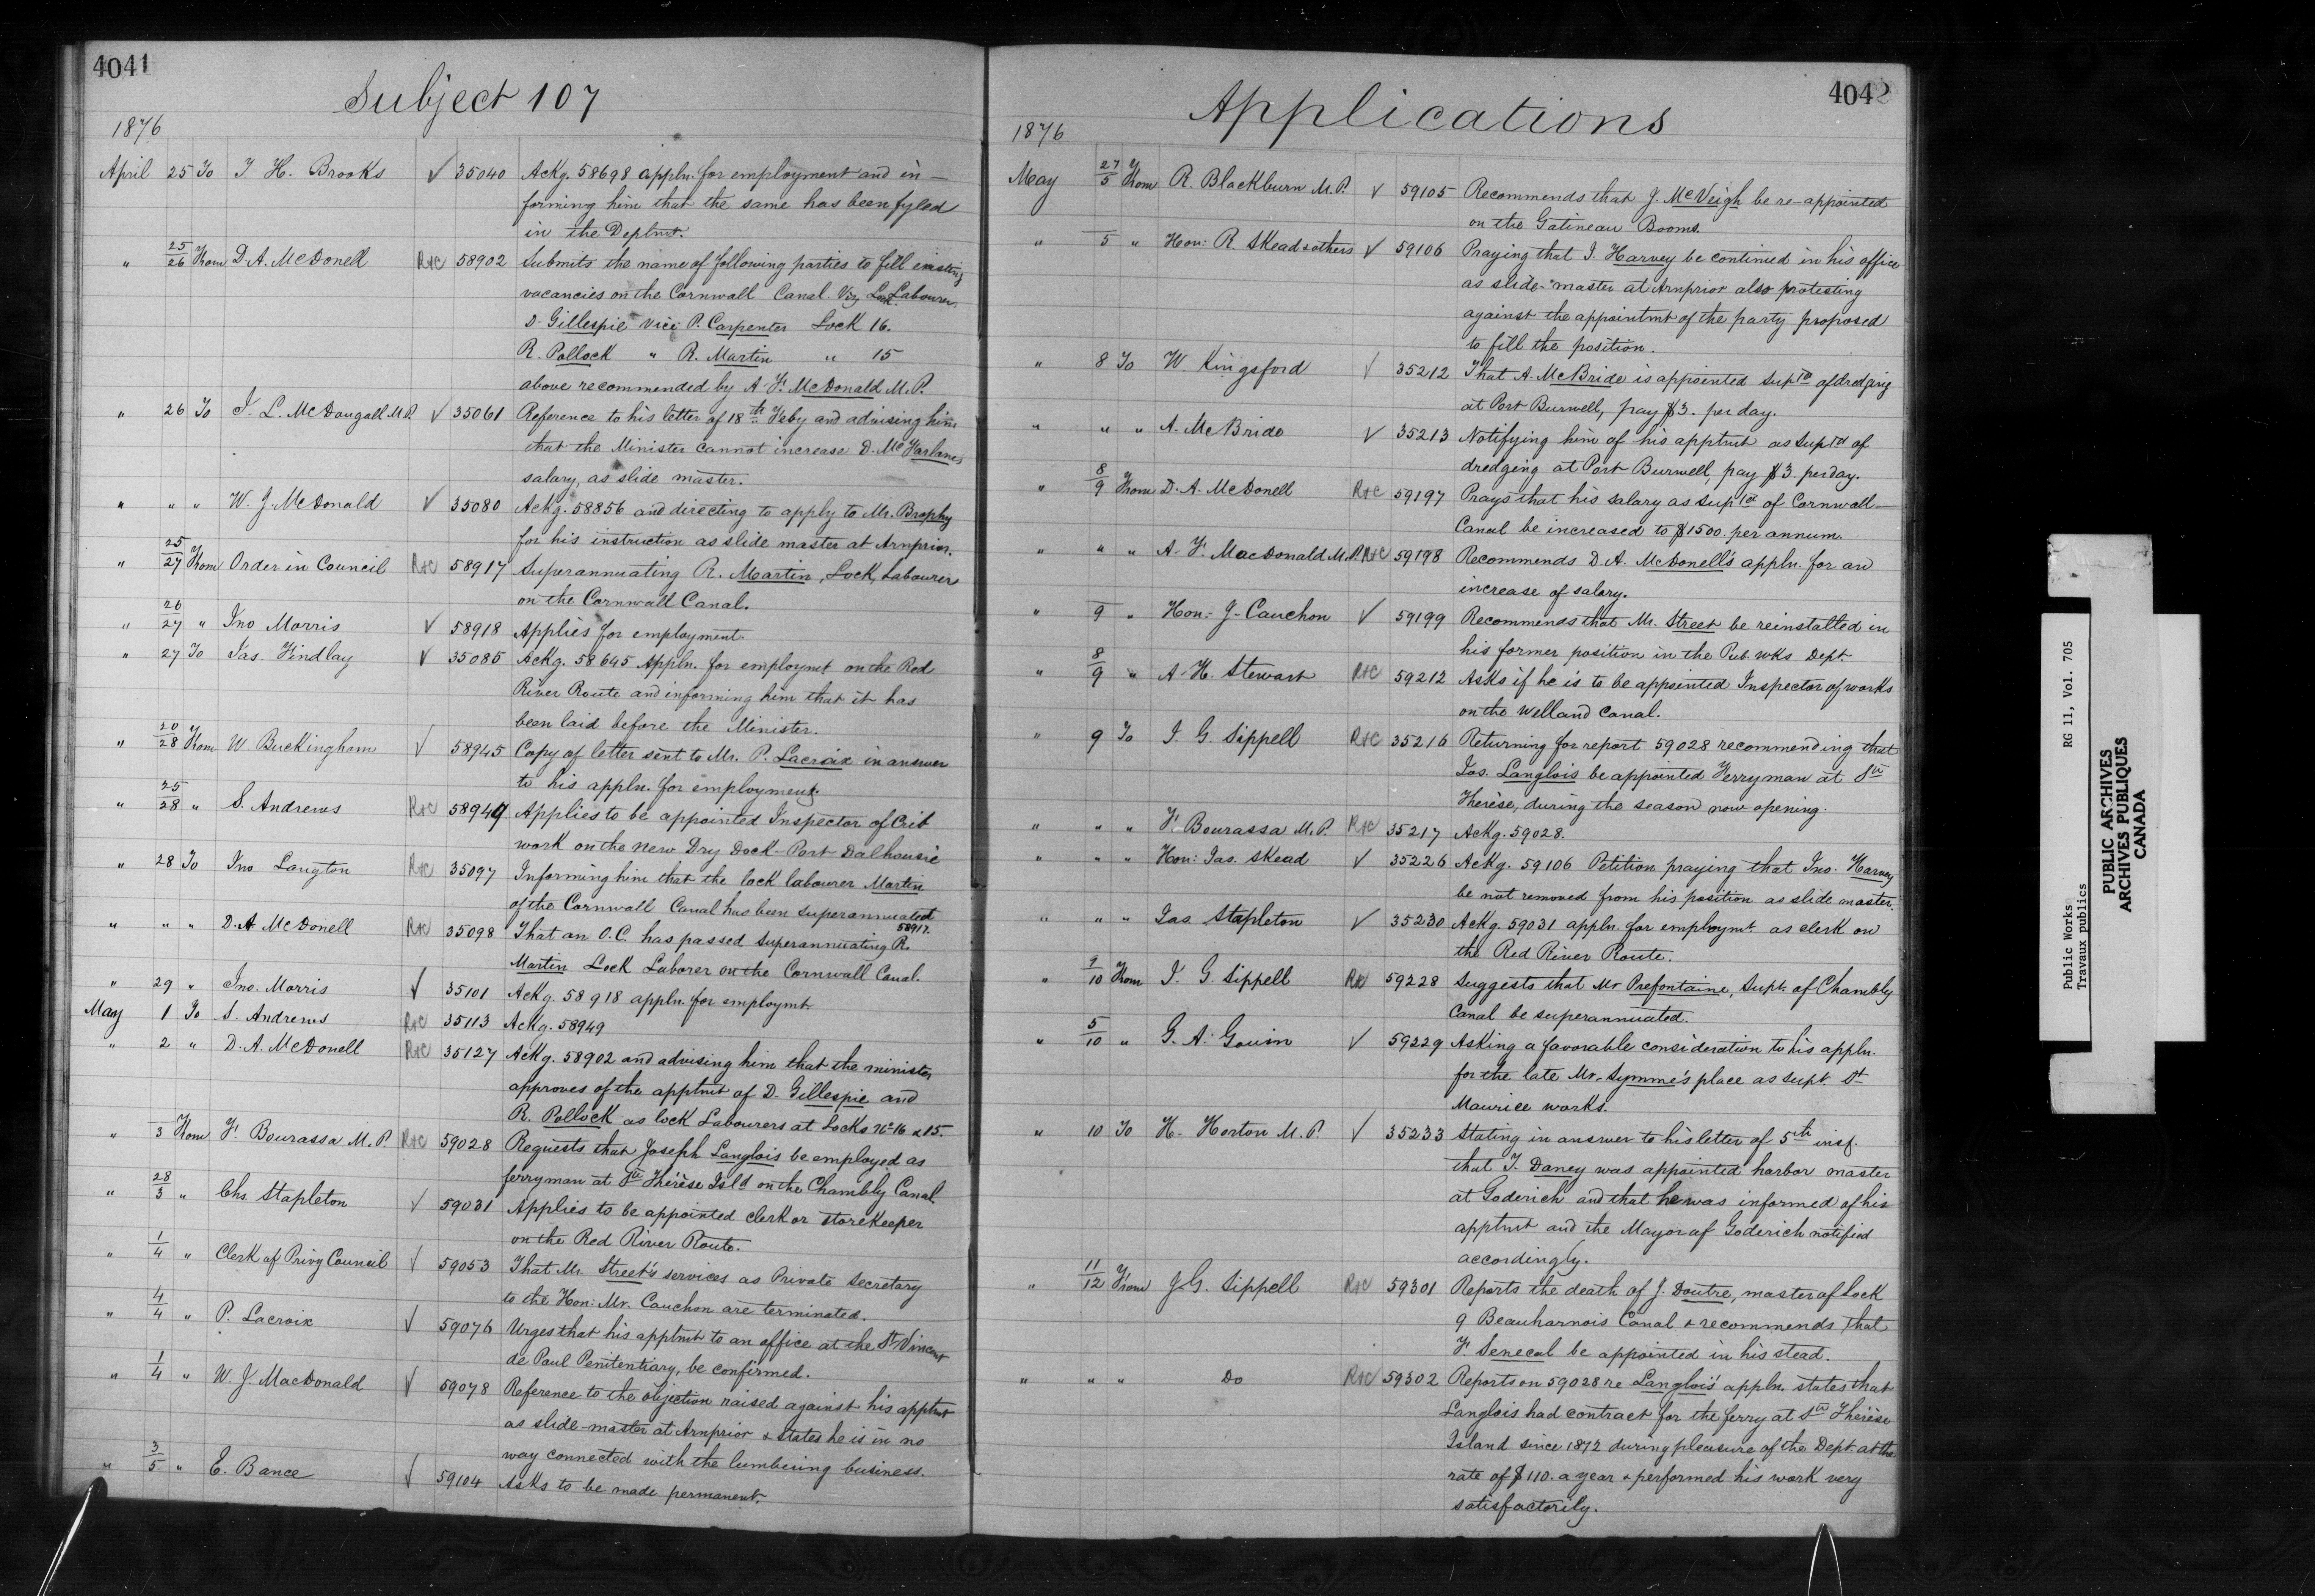 4041
Subject 107
1876
April 25 To T. H. Brooks ✓ 35040 Ackg. 58698 appln. for employment and in-
forming him that the same has been fyled
in the Deptmt.
" 25/26 From D. A. McDonell R&C 58902 Submits the name of following parties to fill existing
vacancies on the Cornwall Canal. Viz Lock Labourer.
D. Gillespie vice P. Carpenter Lock 16.
R. Pollock " R. Martin " 15
above recommended by A. F. McDonald M.P.
" 26 To J. L. McDougall M.P. ✓ 35061 Reference to his letter of 18th Feby and advising him
that the Minister cannot increase D. McFarlane's
salary, as slide master.
" " " W. J. McDonald ✓ 35080 Ackg. 58856 and directing to apply to Mr. Brophy
for his instruction as slide master at Arnprior.
" 25/27 From Order in Council R&C 58917 Superannuating R. Martin, Lock Labourer
on the Cornwall Canal.
" 26/27 " Jno Morris ✓ 58918 Applies for employment.
" 27 To Jas. Findlay ✓ 35085 Ackg. 58645 Appln. for employmt on the Red
River Route and informing him that it has
been laid before the Minister.
" 20/28 From W. Buckingham ✓ 58945 Copy of letter sent to Mr. P. Lacroix in answer
to his appln. for employment.
" 25/28 " S. Andrews R&C 58949 Applies to be appointed Inspector of Crib
work on the new Dry Dock - Port Dalhousie
" 28 To Jno Langton R&C 35097 Informing him that the lock labourer Martin
of the Cornwall Canal has been superannuated
58917.
" " " D. A. McDonell R&C 35098 That an O.C. has passed superannuating R.
Martin Lock Laborer on the Cornwall Canal.
" 29 " Jno. Morris ✓ 35101 Ackg. 58918 appln. for employmt.
May 1 To S. Andrews R&C 35113 Ackg. 58949
" 2 " D. A. McDonell R&C 35127 Ackg. 58902 and advising him that the minister
approves of the apptmt of D. Gillespie and
R. Pollock as lock Labourers at Locks No 16 & 15.
" 3 From F. Bourassa M.P. R&C 59028 Requests that Joseph Langlois be employed as
ferryman at Ste Thérèse Isld on the Chambly Canal
" 28/3 " Chs Stapleton ✓ 59031 Applies to be appointed clerk or storekeeper
on the Red River Route.
" 1/4 " Clerk of Privy Council ✓ 59053 That Mr. Street's services as Private Secretary
to the Hon: Mr. Cauchon are terminated.
" 4/4 " P. Lacroix ✓ 59076 Urges that his apptmt to an office at the St Vincent
de Paul Penitentiary, be confirmed.
" 1/4 " W. J. MacDonald ✓ 59078 Reference to the objection raised against his apptmt
as slide-master at Arnprior & states he is in no
way connected with the lumbering business.
" 3/5 " E. Bance ✓ 59104 Asks to be made permanent.
4042
Applications
1876
May 27/5 From R. Blackburn M.P. ✓ 59105 Recommends that J. McVeigh be re-appointed
on the Gatineau Booms.
" 5 " Hon: R. Skead & others ✓ 59106 Praying that J. Harvey be continued in his office
as slide-master at Arnprior also protesting
against the appointmt of the party proposed
to fill the position.
" 8 To W Kingsford ✓ 35212 That A. McBride is appointed Suptd of dredging
at Port Burwell, pay $3. per day.
" " " A. McBride ✓ 35213 Notifying him of his apptmt as Suptd of
dredging at Port Burwell, pay $3. per day.
" 8/9 From D. A. McDonell R&C 59197 Prays that his salary as Suptd of Cornwall
Canal be increased to $1500. per annum.
" " " A. F. MacDonald M.P. R&C 59198 Recommends D. A. McDonell's appln. for an
increase of salary.
" 9 " Hon: J. Cauchon ✓ 59199 Recommends that Mr. Street be reinstalled in
his former position in the Pub. Wks Dept.
" 8/9 " A. H. Stewart R&C 59212 Asks if he is to be appointed Inspector of works
on the Welland Canal.
" 9 To J G. Sippell R&C 35216 Returning for report 59028 recommending that
Jos. Langlois be appointed Ferryman at Ste
Thérèse, during the season now opening.
" " " F. Bourassa M.P. R&C 35217 Ackg. 59028.
" " " Hon: Jas. Skead ✓ 35226 Ackg. 59106 Petition praying that Jno. Harvey
be not removed from his position as slide master.
" " " Jas. Stapleton ✓ 35230 Ackg. 59031 appln. for employmt. as clerk on
the Red River Route.
" 9/10 From J. G. Sippell R&C 59228 Suggests that Mr Prefontaine, Supt. of Chambly
Canal be superannuated.
" 5/10 " G. A. Gouin ✓ 59229 Asking a favorable consideration to his appln.
for the late Mr. Symme's place as Supt. St
Maurice works.
" 10 To H. Horton M.P. ✓ 35233 Stating in answer to his letter of 5th inst.
that T. Dancy was appointed harbor master
at Goderich and that he was informed of his
apptmt and the Mayor of Goderich notified
accordingly.
" 11/12 From J. G. Sippell R&C 59301 Reports the death of J. Doutre, master of Lock
9 Beauharnois Canal & recommends that
F. Senecal be appointed in his stead.
" " " Do R&C 59302 Reports on 59028 re Langlois' appln. states that
Langlois had contract for the ferry at Ste Thérèse
Island since 1872 during pleasure of the Dept. at the
rate of $110. a year & performed his work very
satisfactorily.
Public Works RG 11, Vol. 705
Travaux publics
PUBLIC ARCHIVES
ARCHIVES PUBLIQUES
CANADA